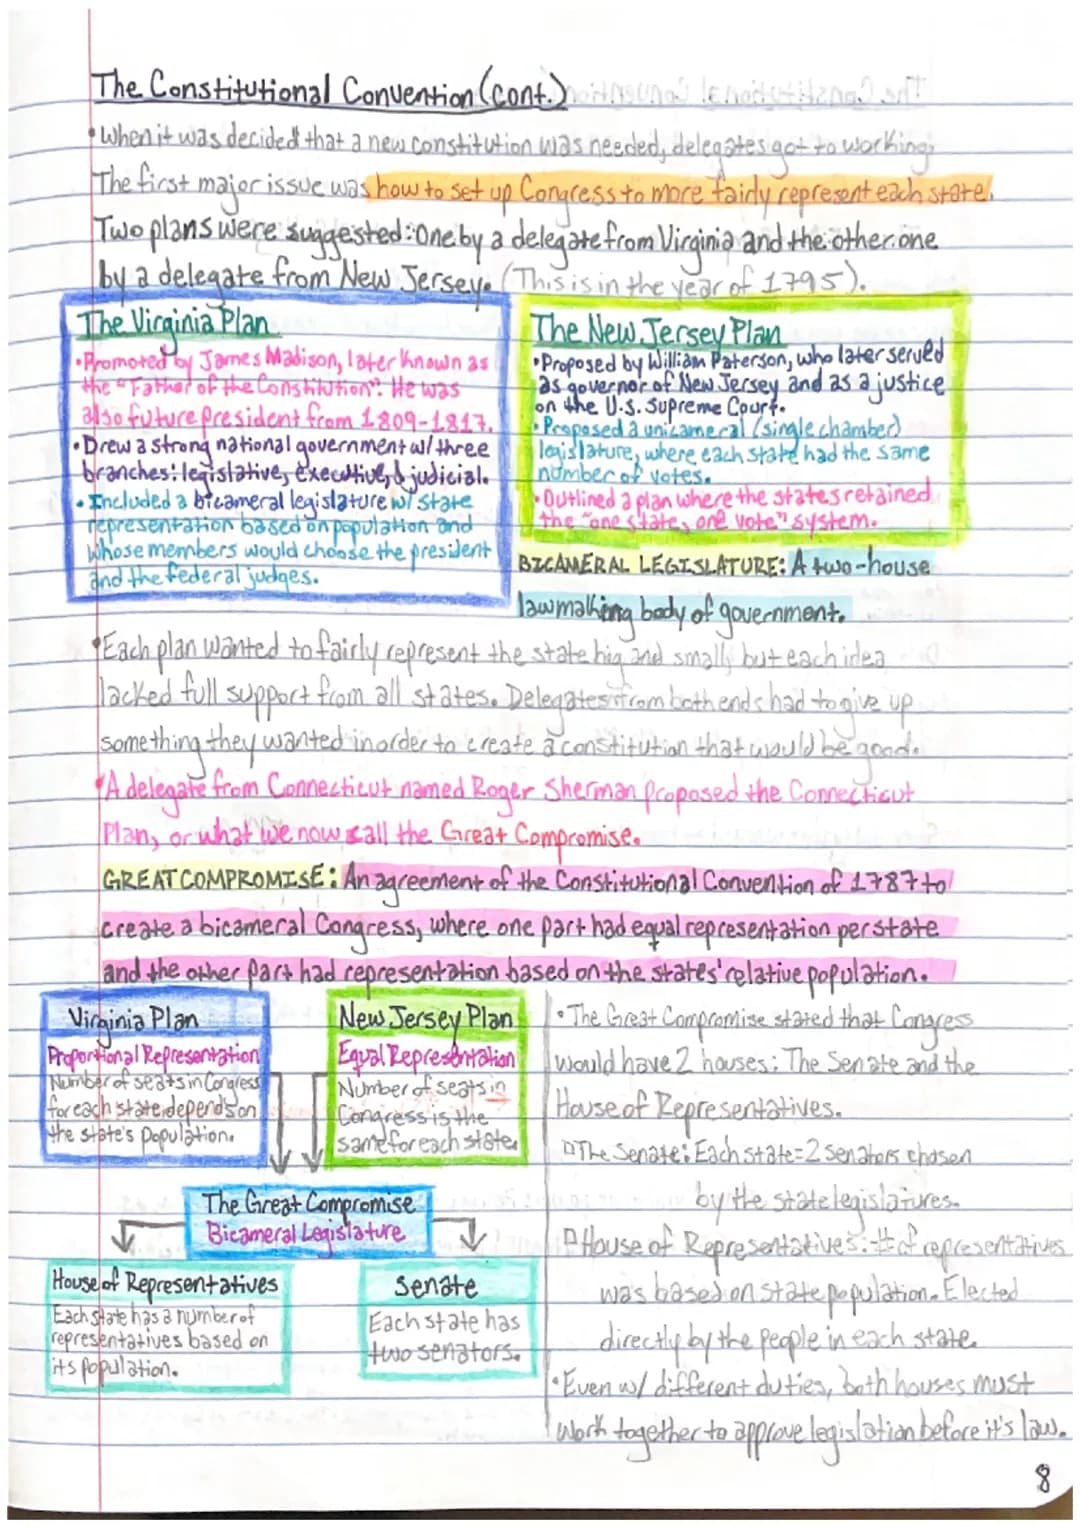 The Constitutional Convention (cont.)
• When it was decided that a new constitution was needed, delegates got to working.
The first major issue was how to set up Congress to more fairly represent each state.
Two plans were suggested: One by a delegate from Virginia and the other one
by a delegate from New Jersey. (This is in the year of 1795).
The Virginia Plan
• Promoted by James Madison, later known as
the "Father of the Constitution". He was
also future president from 1809-1817.
• Drew a strong national government w/ three
branches: legislative, executive, & judicial.
• Included a bicameral legislature w/ state
representation based on population and
whose members would choose the president
and the federal judges.
The New Jersey Plan
• Proposed by William Paterson, who later served
as governor of New Jersey and as a justice
on the U.S. Supreme Court.
• Proposed a unicameral (single chamber)
legislature, where each state had the same
number of votes.
• Outlined a plan where the states retained
the "one state, one vote" system.
BICAMERAL LEGISLATURE: A two-house
lawmaking body of government.
• Each plan wanted to fairly represent the state big and small, but each idea
lacked full support from all states. Delegates from both ends had to give up
something they wanted in order to create a constitution that would be good.
• A delegate from Connecticut named Roger Sherman proposed the Connecticut
Plan, or what we now call the Great Compromise.
GREAT COMPROMISE: An agreement of the Constitutional Convention of 1787 to
create a bicameral Congress, where one part had equal representation per state
and the other part had representation based on the states' relative population.
Virginia Plan
Proportional Representation
Number of seats in Congress
for each state depends on
the state's population.
New Jersey Plan
Equal Representation
Number of seats in
Congress is the
same for each state.
The Great Compromise
Bicameral Legislature
House of Representatives
Each state has a number of
representatives based on
its population.
Senate
Each state has
two senators.
• The Great Compromise stated that Congress
would have 2 houses: The Senate and the
House of Representatives.
□ The Senate: Each state=2 senators chosen
by the state legislatures.
□ House of Representatives: # of representatives
was based on state population. Elected
directly by the people in each state.
• Even w/ different duties, both houses must
work together to approve legislation before it's law.
8